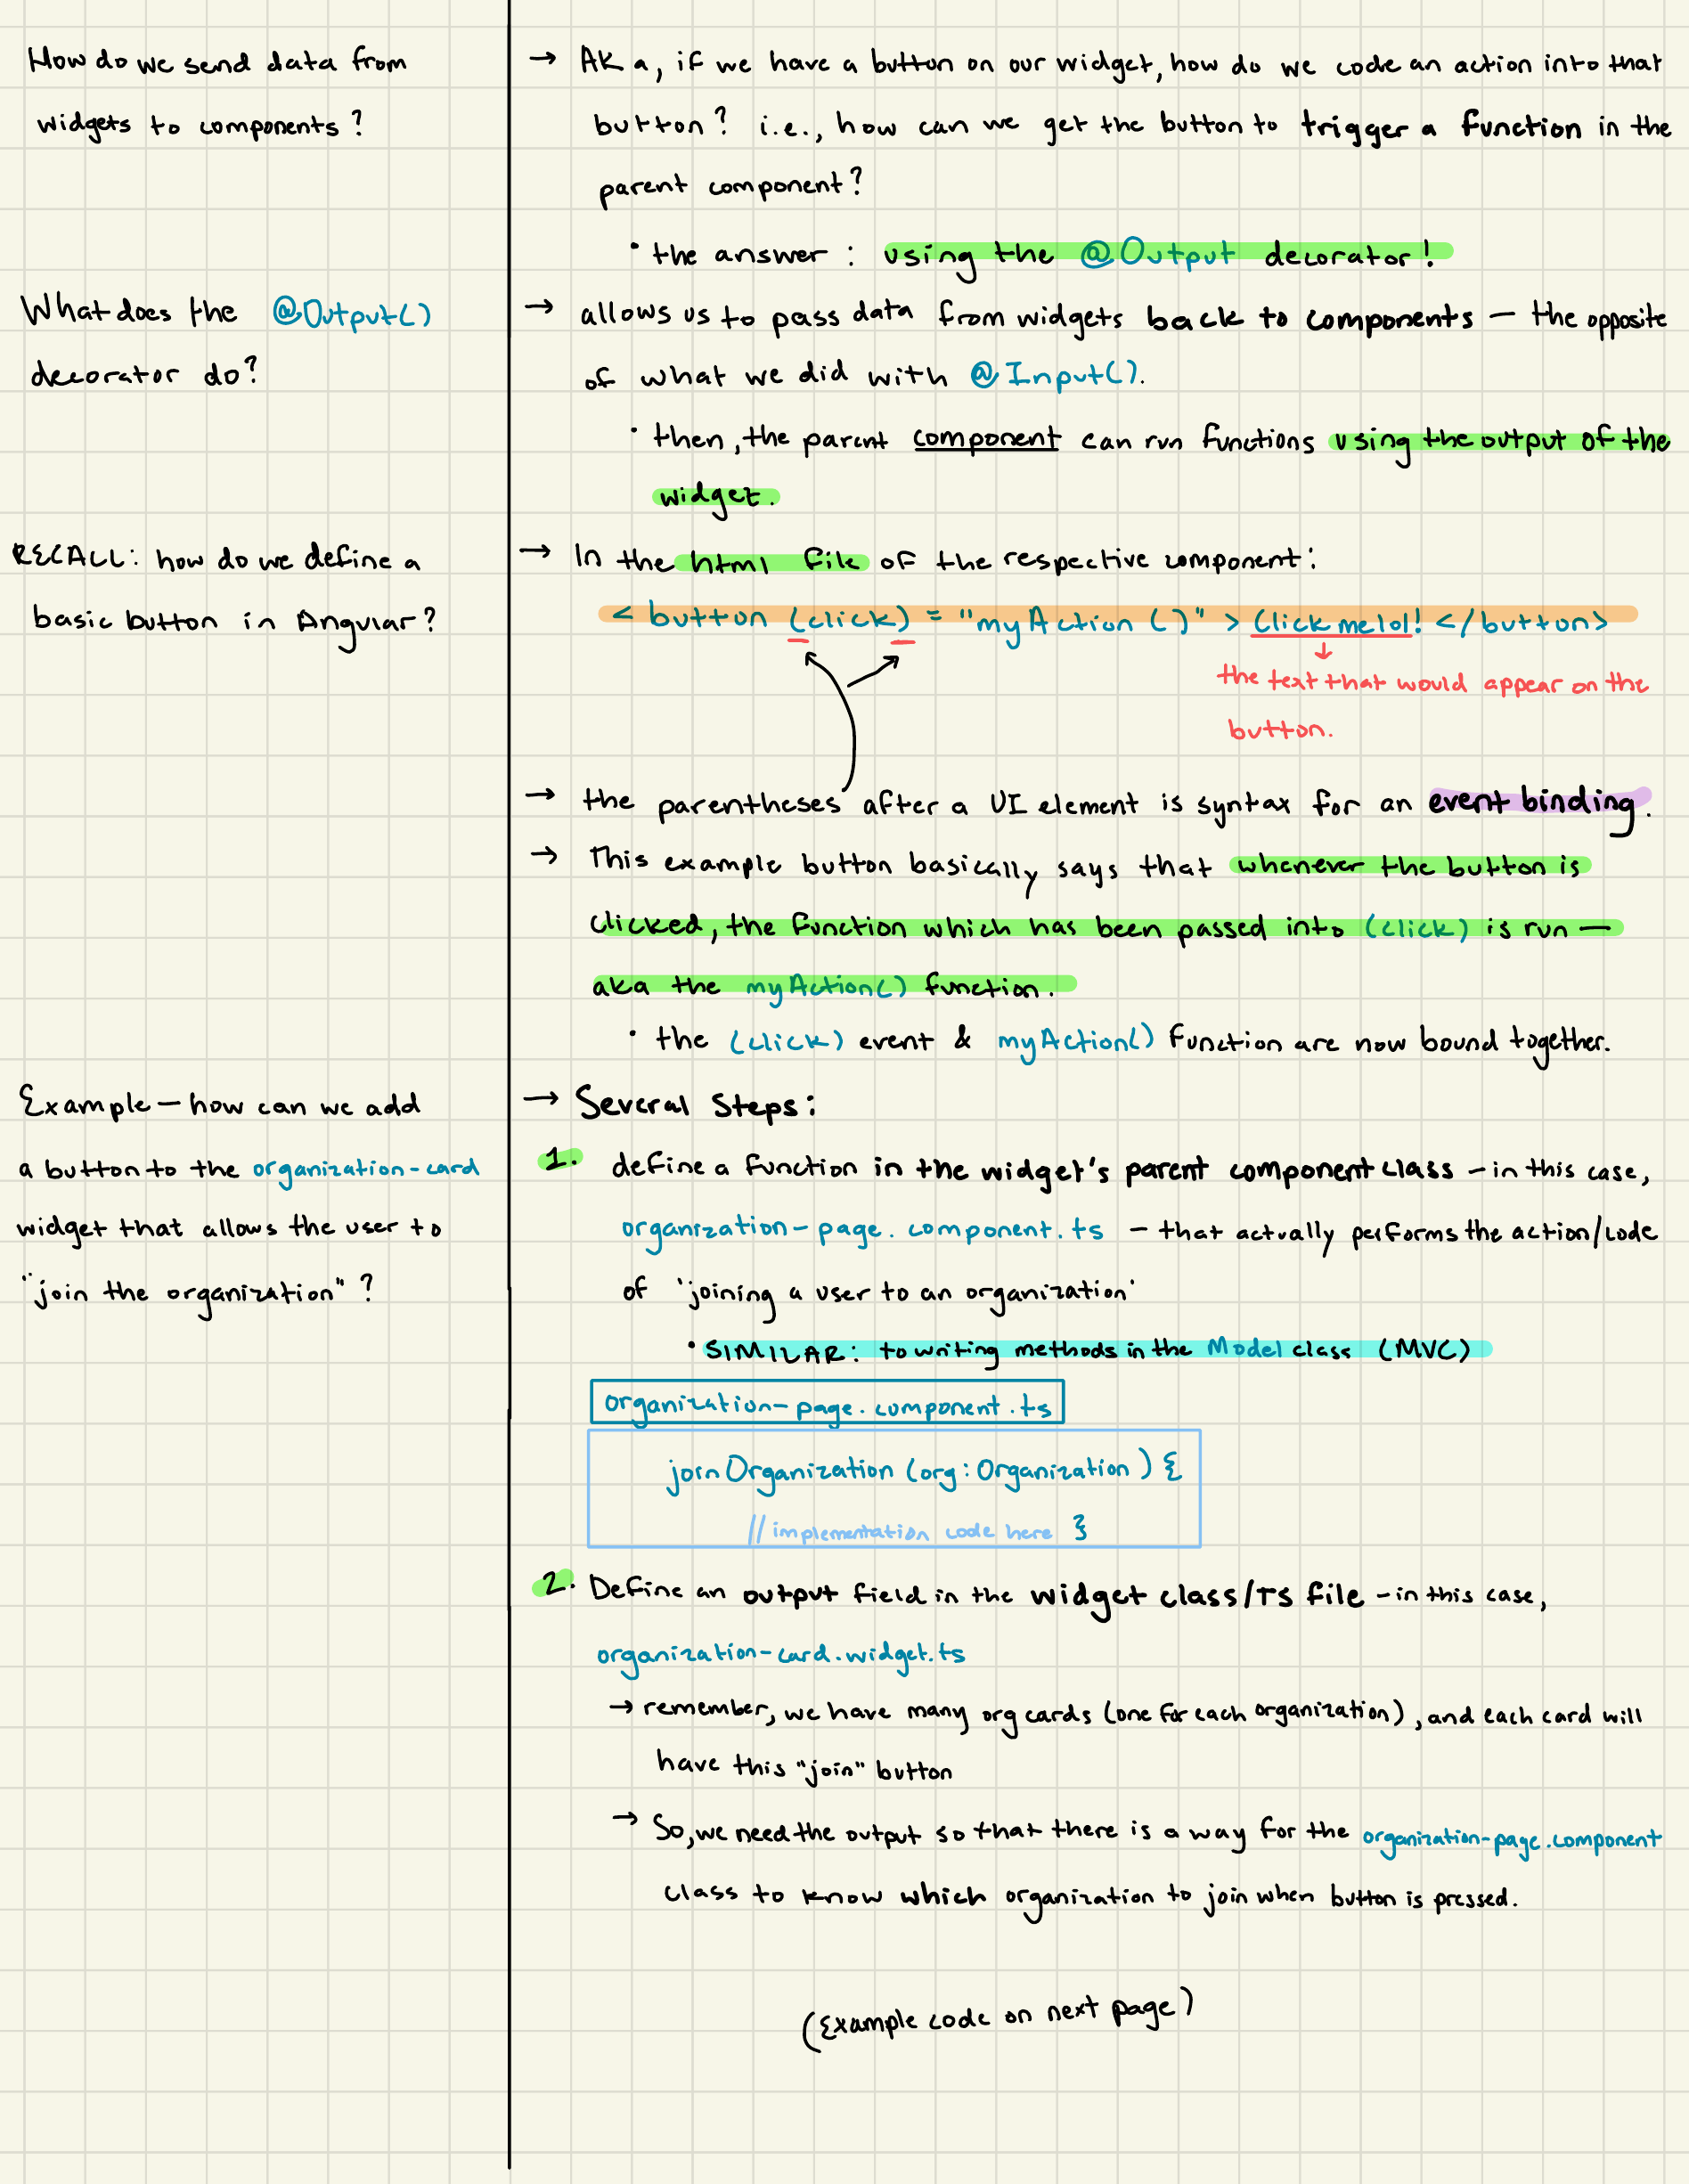 How do we send data from
widgets to components?
→ AKa, if we have a button on our widget, how do we code an action into that
button? i.e., how can we get the button to trigger a function in the
parent component?
• the answer: using the @Output decorator!
What does the @Output()
decorator do?
→ allows us to pass data from widgets back to components — the opposite
of what we did with @Input().
• then, the parent component can run functions using the output of the
widget.
RECALL: how do we define a
basic button in Angular?
→ In the html file of the respective component:
<button (click) = "myAction()" > Click me lol! </button>
↓
the text that would appear on the
button.
→ the parentheses after a UI element is syntax for an event binding.
→ This example button basically says that whenever the button is
clicked, the function which has been passed into (click) is run —
aka the myAction() function.
• the (click) event & myAction() function are now bound together.
Example — how can we add
a button to the organization-card
widget that allows the user to
"join the organization"?
→ Several Steps:
1. define a function in the widget's parent component class — in this case,
organization-page.component.ts — that actually performs the action/code
of 'joining a user to an organization'
• SIMILAR: to writing methods in the Model class (MVC)
organization-page.component.ts
joinOrganization (org: Organization) {
// implementation code here }
2. Define an output field in the widget class/TS file — in this case,
organization-card.widget.ts
→ remember, we have many org cards (one for each organization), and each card will
have this "join" button
→ So, we need the output so that there is a way for the organization-page.component
class to know which organization to join when button is pressed.
(Example code on next page)